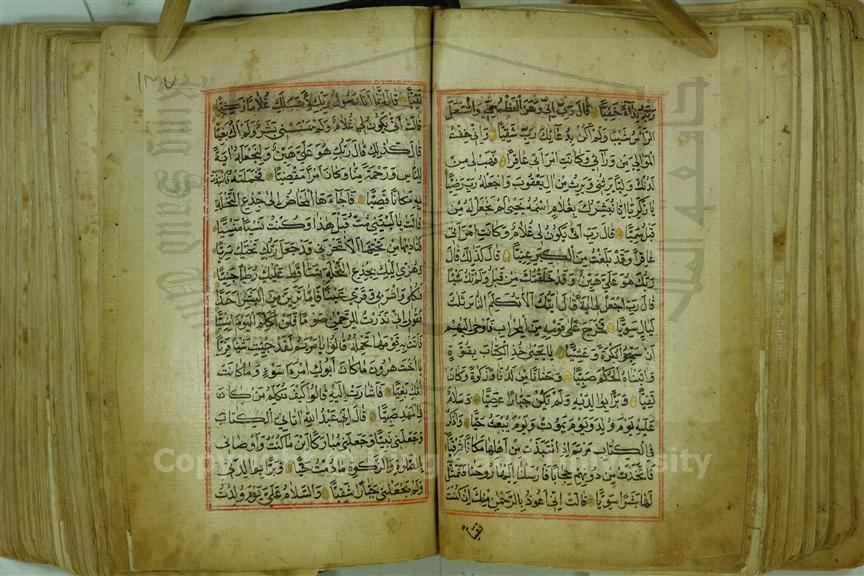 ربه نداء خفيا قال رب اني وهن العظم مني واشتعل
الرأس شيبا ولم اكن بدعائك رب شقيا واني خفت
الموالي من ورائي وكانت امرأتي عاقرا فهب لي من
لدنك وليا يرثني ويرث من ال يعقوب واجعله رب رضيا
يا زكريا انا نبشرك بغلام اسمه يحيى لم نجعل له من
قبل سميا قال رب انى يكون لي غلام وكانت امرأتي
عاقرا وقد بلغت من الكبر عتيا قال كذلك قال
ربك هو علي هين وقد خلقتك من قبل ولم تك شيئا
قال رب اجعل لي اية قال ايتك الا تكلم الناس ثلث
ليال سويا فخرج على قومه من المحراب فاوحى اليهم
ان سبحوا بكرة وعشيا يا يحيى خذ الكتاب بقوة
واتيناه الحكم صبيا وحنانا من لدنا وزكوة وكان
تقيا وبرا بوالديه ولم يكن جبارا عصيا وسلام
عليه يوم ولد ويوم يموت ويوم يبعث حيا واذكر
في الكتاب مريم اذ انتبذت من اهلها مكانا شرقيا
فاتخذت من دونهم حجابا فارسلنا اليها روحنا فتمثل
لها بشرا سويا قالت اني اعوذ بالرحمن منك ان كنت
تقيا
١٣٧
تقيا قال انما انا رسول ربك لاهب لك غلاما زكيا
قالت انى يكون لي غلام ولم يمسسني بشر ولم اك بغيا
قال كذلك قال ربك هو علي هين ولنجعله اية
للناس ورحمة منا وكان امرا مقضيا فحملته فانتبذت
به مكانا قصيا فاجاءها المخاض الى جذع النخلة
قالت يا ليتني مت قبل هذا وكنت نسيا منسيا
فناديها من تحتها الا تحزني قد جعل ربك تحتك سريا
وهزي اليك بجذع النخلة تساقط عليك رطبا جنيا
فكلي واشربي وقري عينا فاما ترين من البشر احدا
فقولي اني نذرت للرحمن صوما فلن اكلم اليوم انسيا
فاتت به قومها تحمله قالوا يا مريم لقد جئت شيئا فريا
يا اخت هرون ما كان ابوك امرء سوء وما كانت
امك بغيا فاشارت اليه قالوا كيف نكلم من كان
في المهد صبيا قال اني عبد الله اتاني الكتاب
وجعلني نبيا وجعلني مباركا اين ما كنت واوصاني
بالصلوة والزكوة ما دمت حيا وبرا بوالدتي
ولم يجعلني جبارا شقيا والسلام علي يوم ولدت